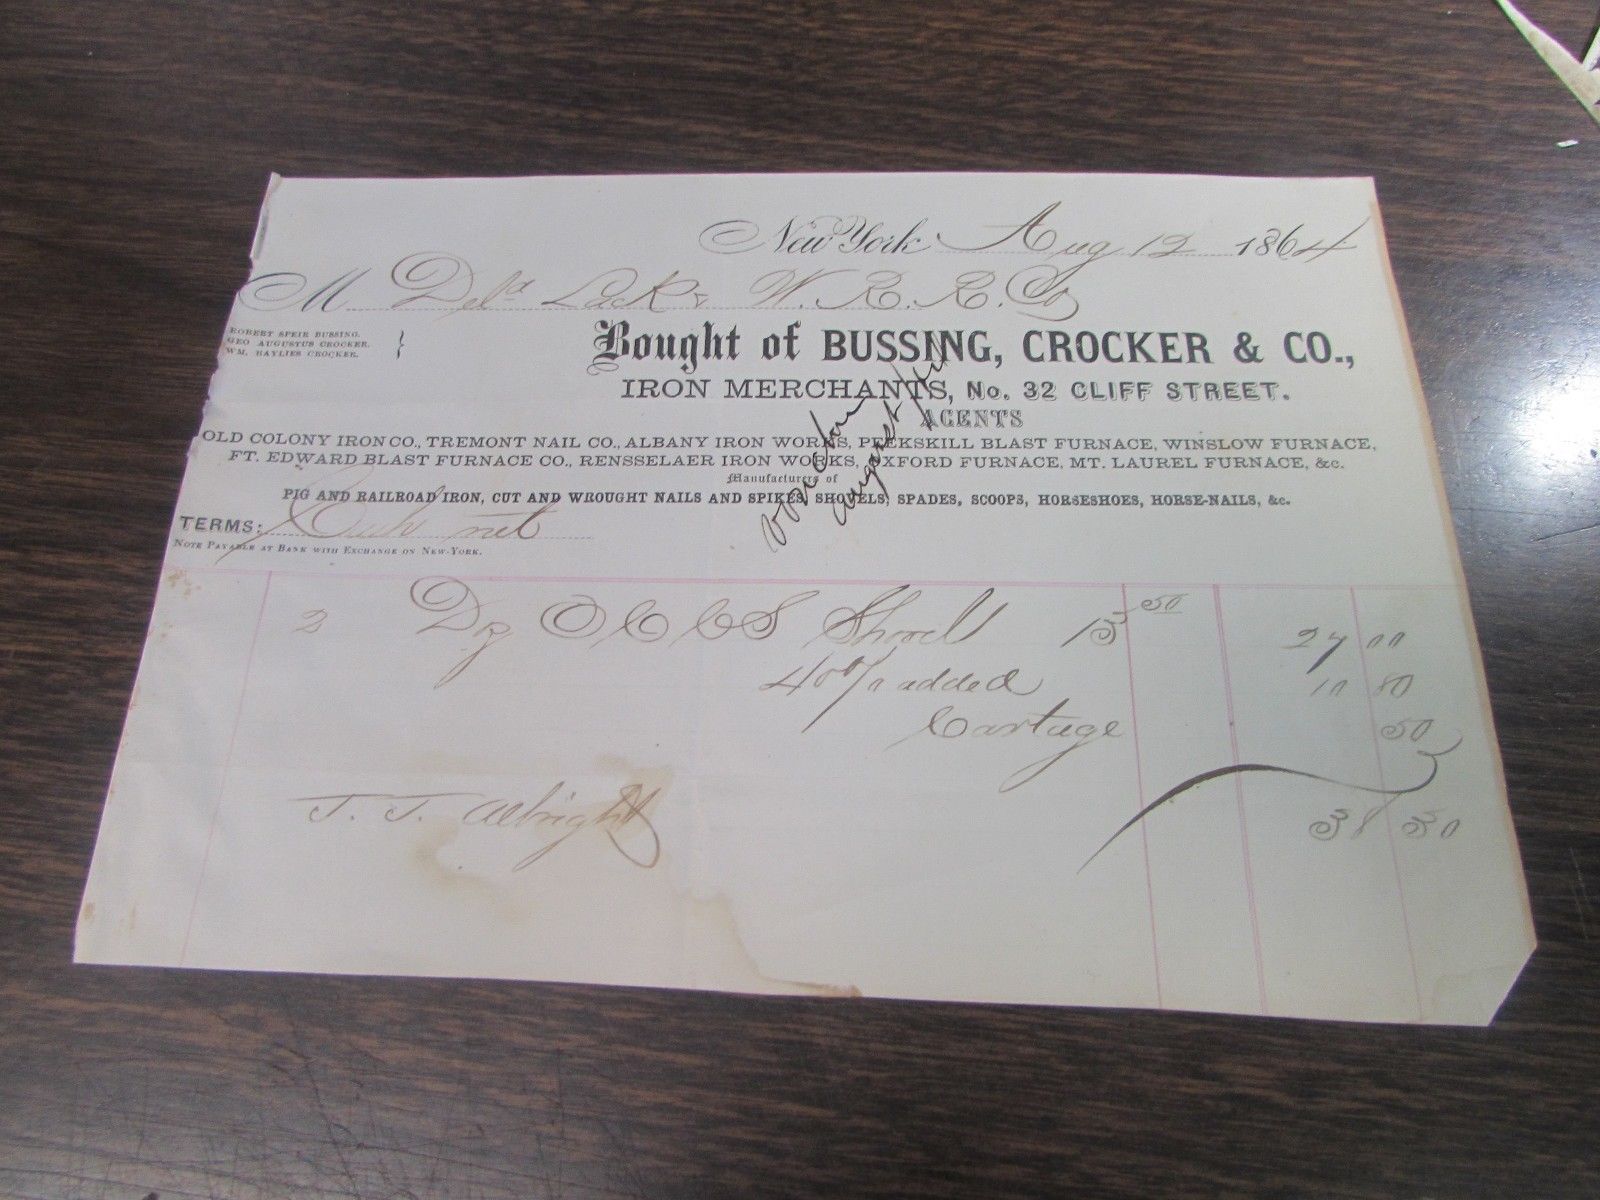 New York Aug 12 1864
M Dela Lack & W. R. R. Co
ROBERT SPEIR BUSSING.
GEO AUGUSTUS CROCKER.
WM. BAYLIES CROCKER.
Bought of BUSSING, CROCKER & CO.,
IRON MERCHANTS, No. 32 CLIFF STREET.
AGENTS
OLD COLONY IRON CO., TREMONT NAIL CO., ALBANY IRON WORKS, PEEKSKILL BLAST FURNACE, WINSLOW FURNACE,
FT. EDWARD BLAST FURNACE CO., RENSSELAER IRON WORKS, OXFORD FURNACE, MT. LAUREL FURNACE, &c.
Manufacturers of
PIG AND RAILROAD IRON, CUT AND WROUGHT NAILS AND SPIKES, SHOVELS, SPADES, SCOOPS, HORSESHOES, HORSE-NAILS, &c.
TERMS: Cash net
NOTE PAYABLE AT BANK WITH EXCHANGE ON NEW-YORK.
August
2 Dz O C C S Shovel 13 50 27 00
40 % added 10 80
Cartage 50
38 30
J. J. Albright